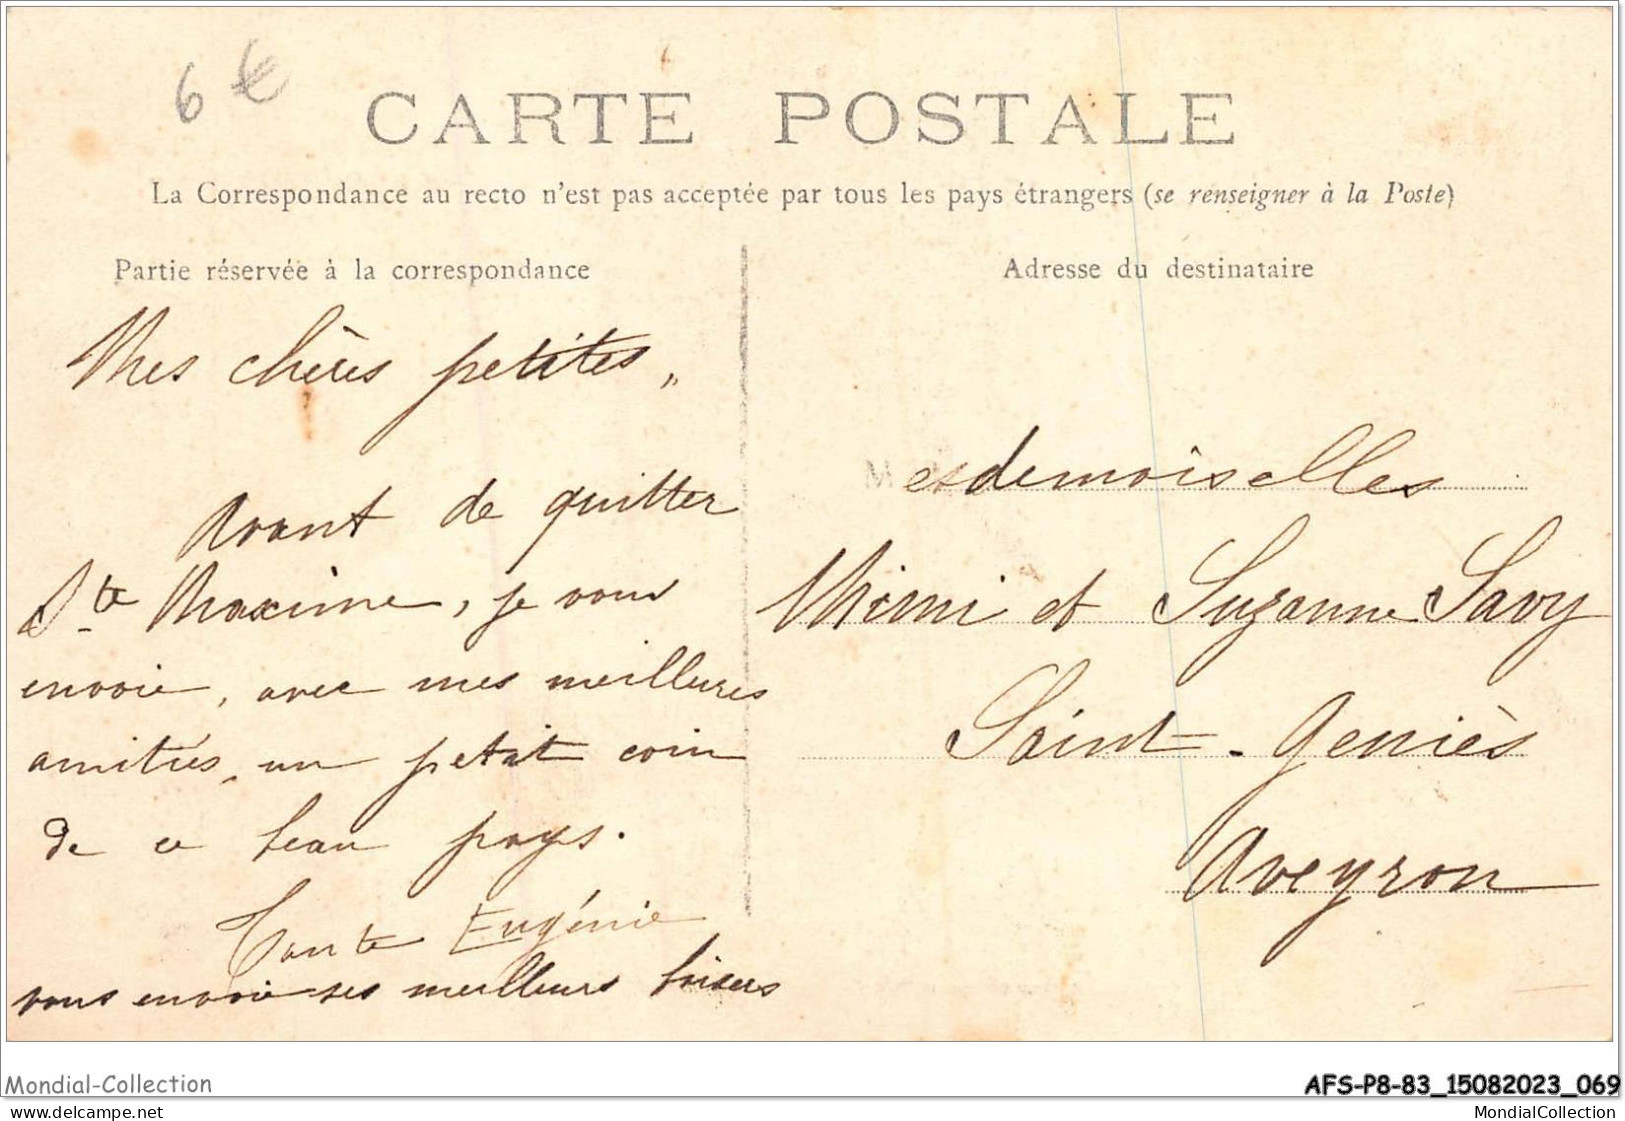 6 €
CARTE POSTALE
La Correspondance au recto n'est pas acceptée par tous les pays étrangers (se renseigner à la Poste)
Partie réservée à la correspondance
Mes chères petites,
Avant de quitter
Ste Maxime, je vous
envoie, avec mes meilleures
amitiés, un petit coin
de ce beau pays.
Tante Eugénie
vous envoie ses meilleurs baisers
Adresse du destinataire
Mesdemoiselles
Mimi et Suzanne Savy
Saint-Geniès
Aveyron
Mondial-Collection
AFS-P8-83_15082023_069
delcampe.net
MondialCollection